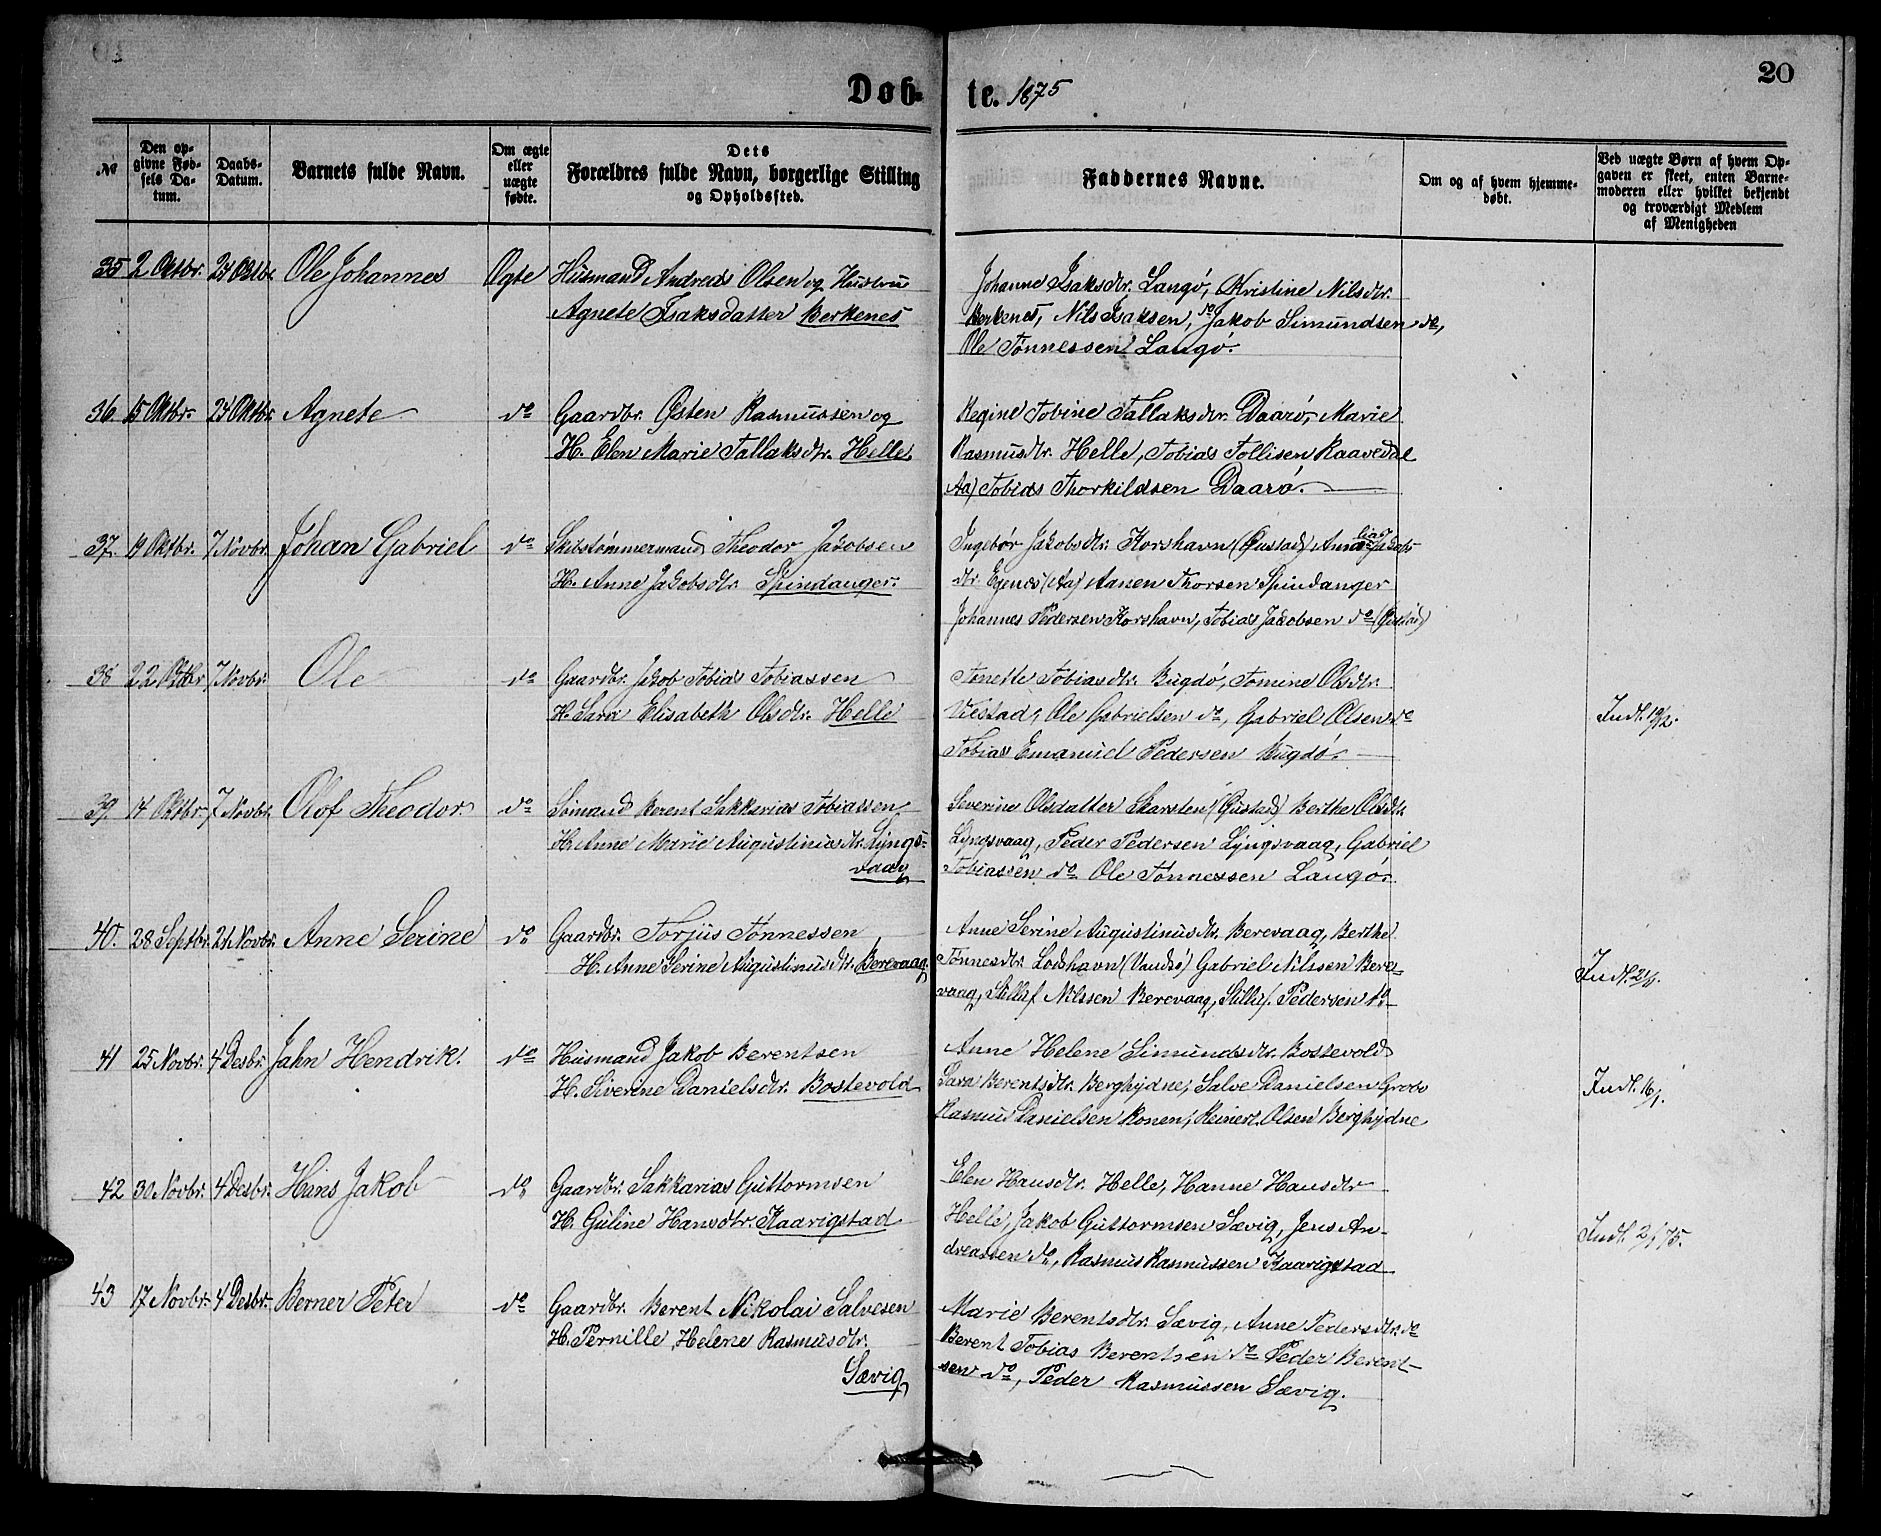 20
Døb-
te. 1875
№
Den op-
givne Fød-
sels Da-
tum.
Daabs-
Datum.
Barnets fulde Navn.
Om ægte
eller
uægte
fødte.
Dets
Forældres fulde Navn, borgerlige Stilling
og Opholdssted.
Faddernes Navne.
Om og af hvem hjemme-
døbt.
Ved uægte Børn af hvem Op-
gaven er skeet, enten Barne-
moderen eller hvilket bekjendt
og troværdigt Medlem
af Menigheden
35 2 Oktbr. 24 Oktbr. Ole Johannes Ægte Husmand Andreas Olsen og Hustru
Agnete Isaksdatter Berkenes
Johanne Isaksdtr. Langø, Kristine Nilsdtr.
Berkenes, Nils Isaksen, do Jakob Simundsen do,
Ole Tønnessen Langø.
36. 15 Oktbr. 24 Oktbr. Agnete do Gaardbr. Østen Rasmussen og
H. Elen Marie Tallaksdtr. Helle
Regine Tobine Tallaksdtr. Daarø, Marie
Rasmusdtr. Helle, Tobias Tollisen Raavedal
Aa) Tobias Thorkildsen Daarø.
37. 19 Oktbr. 7 Novbr. Johan Gabriel do Skibstømmermand Theodor Jakobsen
H. Anne Jakobsdtr. Spindanger.
Ingebør Jakobsdtr. Korshavn (Øustad) Anne Jakobs-
dtr. Egnes (Aa) Aanen Thorsen Spindanger
Johannes Pedersen Korshavn, Tobias Jakobsen do (Øustad)
38 22 Oktbr 7 Novbr. Ole do Gaardbr. Jakob Tobias Tobiassen
H. Sara Elisabeth Olsdtr. Helle
Tonette Tobiasdtr. Bugdø, Tomine Olsdtr.
Viestad, Ole Gabrielsen do, Gabriel Olsen do
Tobias Emanuel Pedersen Bugdø.
Indl. 19/2.
39. 14 Oktbr. 7 Novbr. Olof Theodor. do Sømand Berent Sakkarias Tobiassen
H. Anne Marie Augustinusdtr. Lyngs-
vaag
Severine Olsdatter Skarsten (Øustad) Berthe Olsdtr.
Lyngsvaag, Peder Pedersen Lyngsvaag, Gabriel
Tobiassen do Ole Tønnessen Langø.
40. 28 Septbr. 21 Novbr. Anne Serine do Gaardbr. Torjus Tønnessen
H. Anne Serine Augustinusdtr. Berevaag.
Anne Serine Augustinusdtr. Berevaag, Berthe
Tønnesdtr. Lodshavn (Vandsø) Gabriel Nilssen Bere-
vaag, Nilssen Berevaag, Pedersen do
Indl. 2
41 25 Novbr. 4 Desbr. Jahn Hendrik. do Husmand Jakob Berentsen
H. Siverine Danielsdtr. Bostevold
Anne Helene Simundsdtr. Bostevold
Sara Berentsdtr. Berghydne, Salve Danielsen Grobs
Rasmus Danielsen Ronen, Reinert Olsen Berghydne
Indl. 16/1.
42 30 Novbr. 4 Desbr. Hans Jakob do Gaardbr. Sakkarias Guttormsen
H. Guline Hansdtr. Kaarigstad
Elen Hansdtr. Helle, Hanne Hansdtr
Helle, Jakob Guttormsen Sævig, Jens An-
dreassen do, Rasmus Rasmussen Kaarigstad
Indl. 2/1 75.
43 17 Novbr. 4 Desbr. Berner Peter do Gaardbr. Berent Nikolai Salvesen
H. Pernille Helene Rasmusdtr.
Sævig
Marie Berentsdtr. Sævig, Anne Pedersdtr. do
Berent Tobias Berentsen do Peder Berent-
sen do, Peder Rasmussen Sævig.